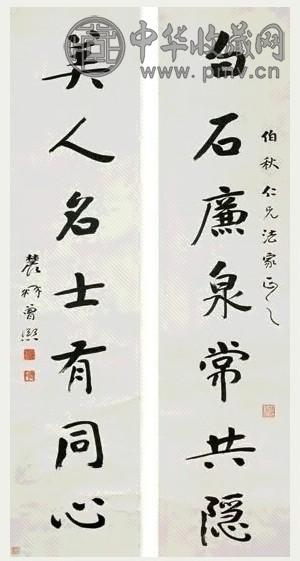 中华收藏网
www.pmv.cn
伯秋仁兄法家正之
白石廉泉常共隐
美人名士有同心
农髯曾熙